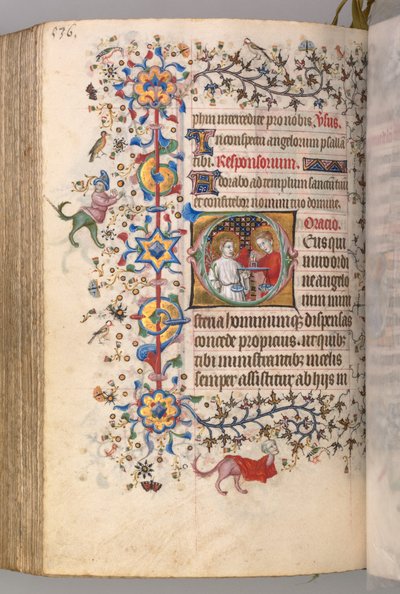 536.
phm intercedite pro nobis. Vsus.
In conspectu angelorum psallā
tibi. Responsorium.
Adorabo ad templum sanctū tuū
et confitebor nomini tuo domine.
Oratio.
Deus qui
miro ordi
ne angelo
rum mini
steria hominumq; dispensas
concede propicius. ut a quibꝫ
tibi ministrantibꝫ in celis
semper assistitur ab hijs in